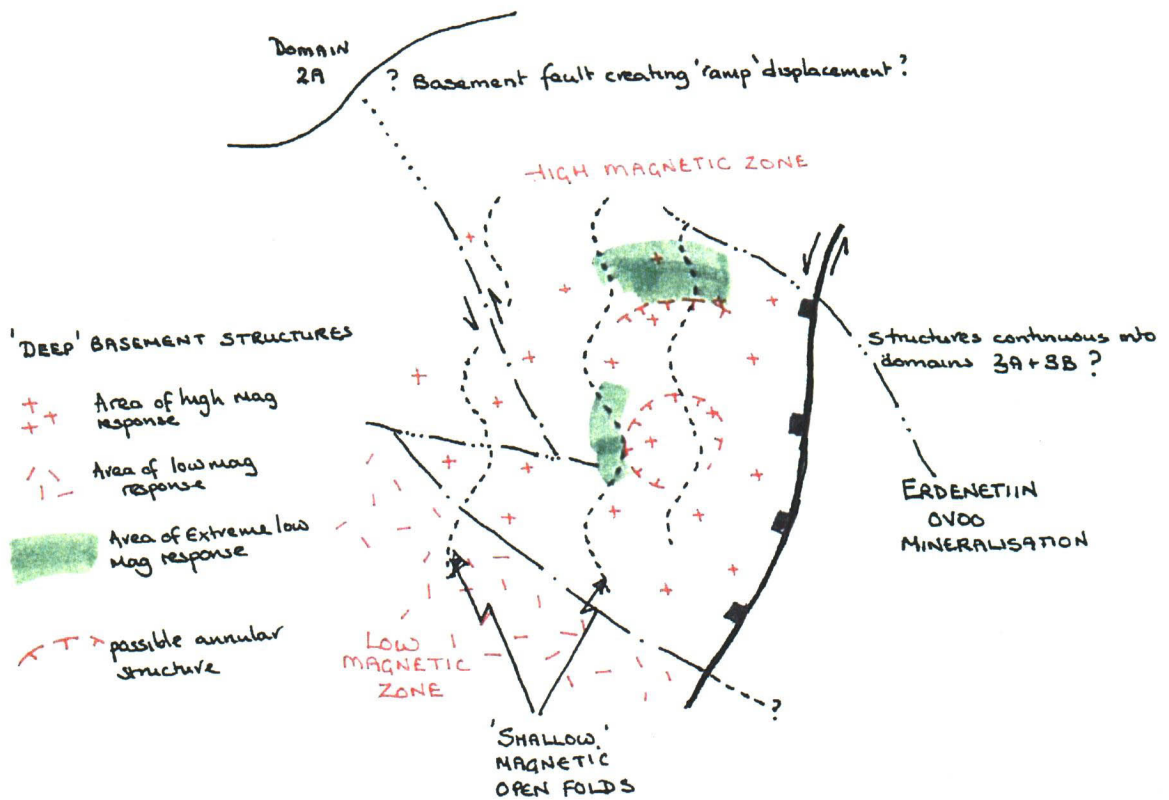 DOMAIN
2A
? Basement fault creating 'ramp' displacement?
HIGH MAGNETIC ZONE
'DEEP' BASEMENT STRUCTURES
Area of high mag
response
Area of low mag
response
Area of Extreme low
Mag response
possible annular
structure
Structures continuous into
domains 3A + 3B ?
ERDENETIIN
OVOO
MINERALISATION
LOW
MAGNETIC
ZONE
?
'SHALLOW'
MAGNETIC
OPEN FOLDS